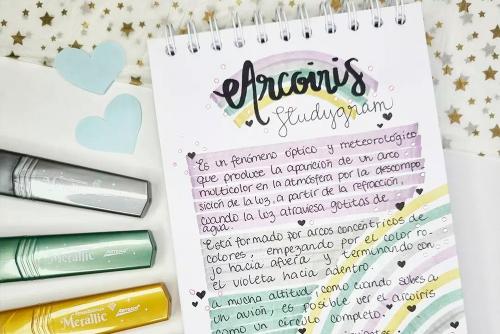 Arcoiris
Studygram
Es un fenómeno óptico y meteorológico
que produce la aparición de un arco
multicolor en la atmósfera por la descompo
sición de la luz, a partir de la refracción,
cuando la luz atraviesa gotitas de
agua.
Está formado por arcos concéntricos de
colores, empezando por el color ro-
jo hacia afuera y terminando con
el violeta hacia adentro.
a mucha altitud, como cuando subes a
un avión, es posible ver el arcoiris
como un círculo completo.
Metallic
Metallic